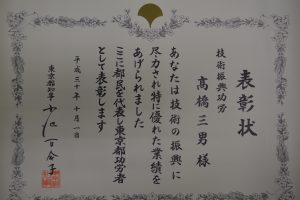 表彰状
技術振興功労
髙橋三男様
あなたは技術の振興に
尽力され特に優れた業績を
あげられました
ここに都民を代表し東京都功労者
として表彰します
平成三十年十月一日
東京都知事 小池百合子